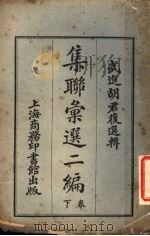 武進胡君復選輯
集聯彙選二編
卷下
上海商務印書館出版